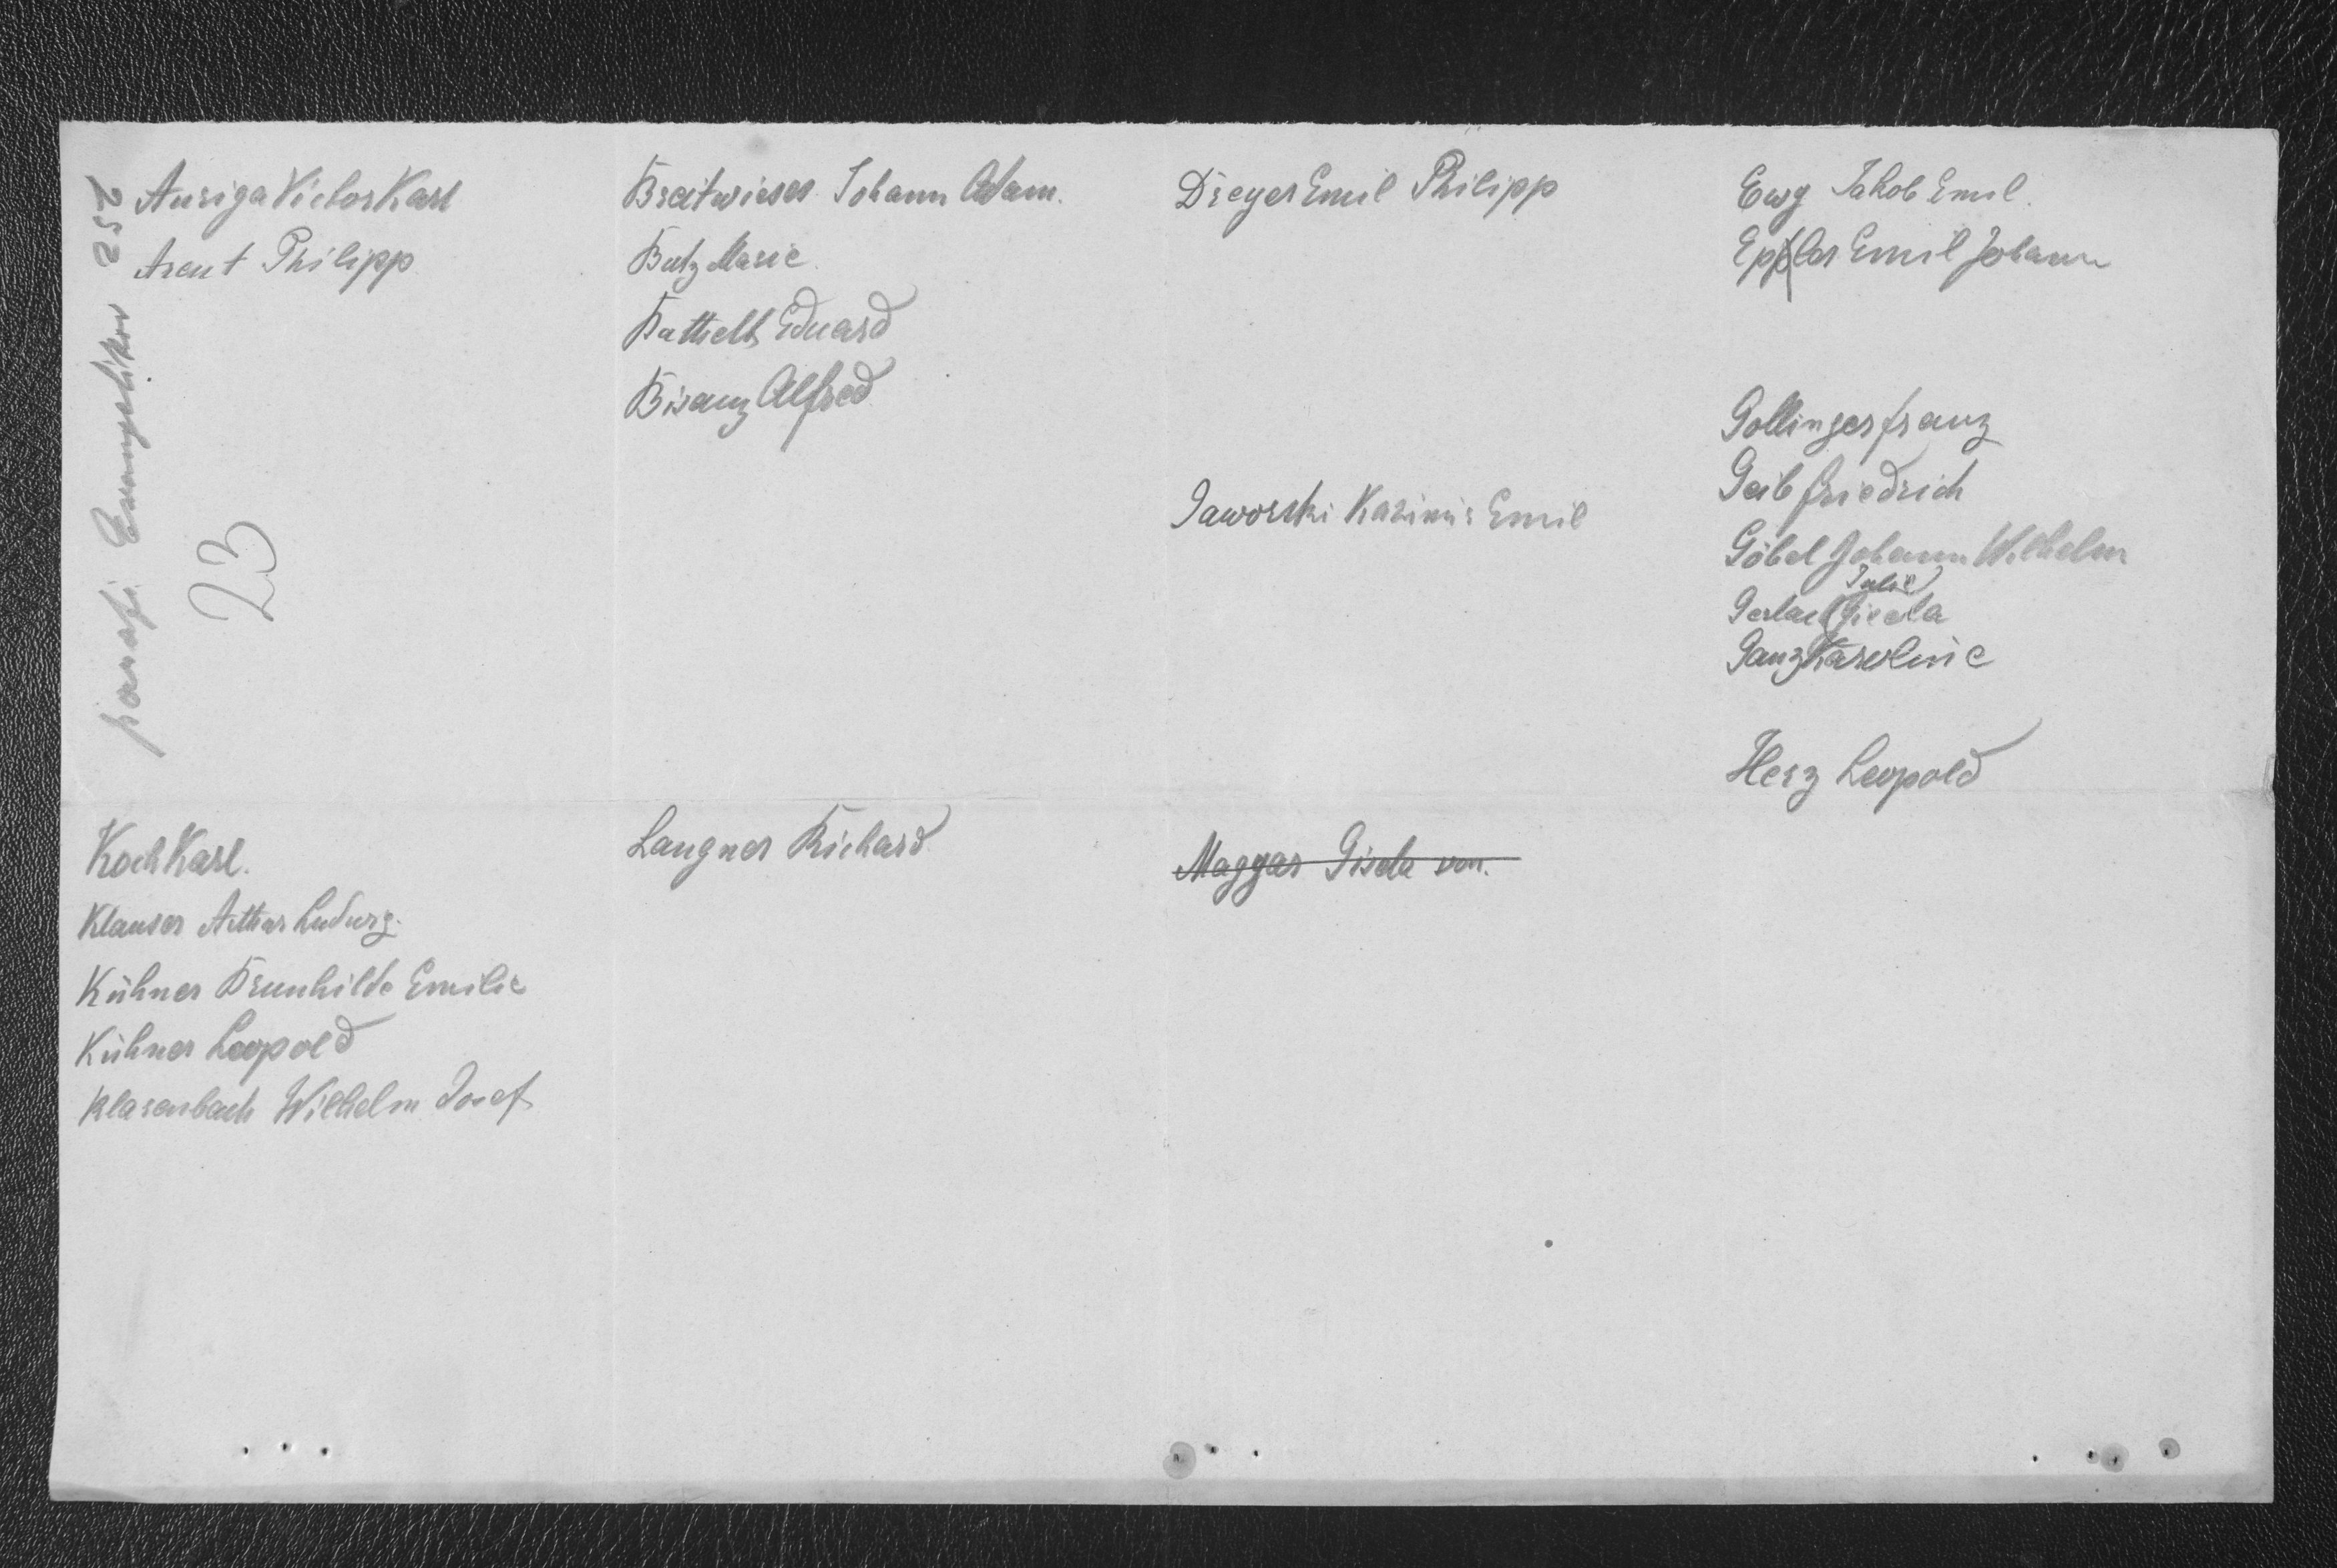 Auriga Victor Karl
Arent Philipp
parafi Ewangelików 252
23
Breitwieser Johann Adam.
Butz Marie
Battielb Eduard
Bisanz Alfred
Dreyer Emil Philipp
Jaworski Kazimir Emil
Ewy Jakob Emil.
Eppler Emil Johann
Gollinger Franz
Geib Friedrich
Göbel Johann Wilhelm
Julie
Gerlach Gisela
Ganz Karoline
Herz Leopold
Koch Karl.
Klauser Arthur Ludwig.
Kühner Brunhilde Emilie
Kühner Leopold
Klasenbach Wilhelm Josef
Langner Richard
Magyar Gisela von.